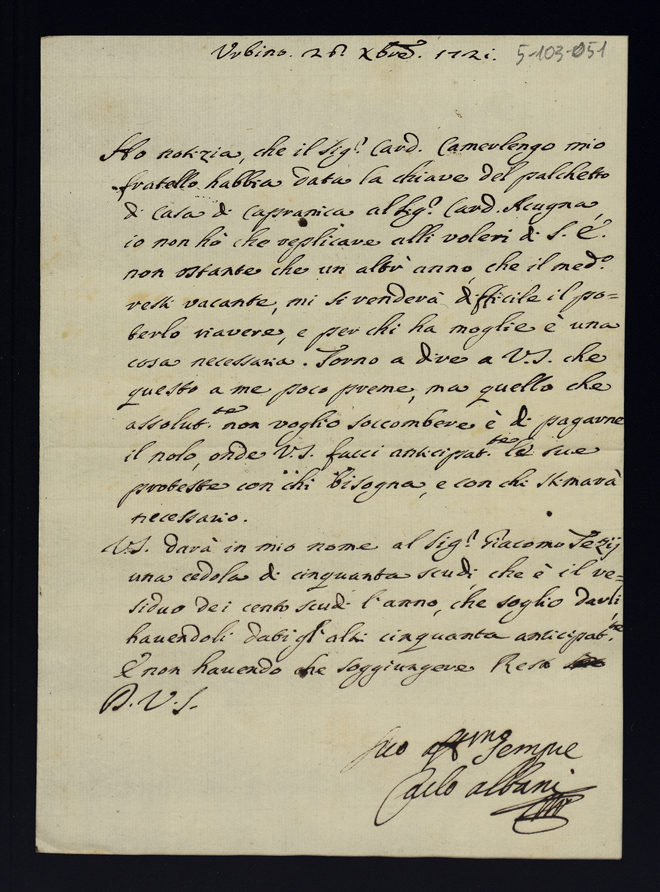 Urbino. 28. Xbre. 1721. 5-103-051
Ho notizia, che il Sig.r Card. Camerlengo mio
fratello habbia data la chiave del palchetto
di Casa di Capranica al Sig.r Card. Acugna,
io non hò che replicare alli voleri di S. E.
non ostante che un altr' anno, che il med.o
resti vacante, mi si renderà difficile il po=
terlo riavere, e per chi ha moglie è una
cosa necessaria. Torno a dire a V.S. che
questo a me poco preme, ma quello che
assolut.te non voglio soccombere è di pagarne
il nolo, onde V.S. facci anticipat.te le sue
proteste con chi bisogna, e con chi stimarà
necessario.
V.S. darà in mio nome al Sig.r Giacomo
una cedola di cinquanta scudi che è il re=
siduo dei cento scudi l'anno, che soglio darli
havendoli dati gl'altri cinquanta anticipat.te
E non havendo che soggiungere Resto
D. V. S.
Suo aff.mo sempre
Carlo Albani